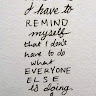 I have to
REMIND
myself
that I don't
have to
do
what
EVERYONE
ELSE
is doing.